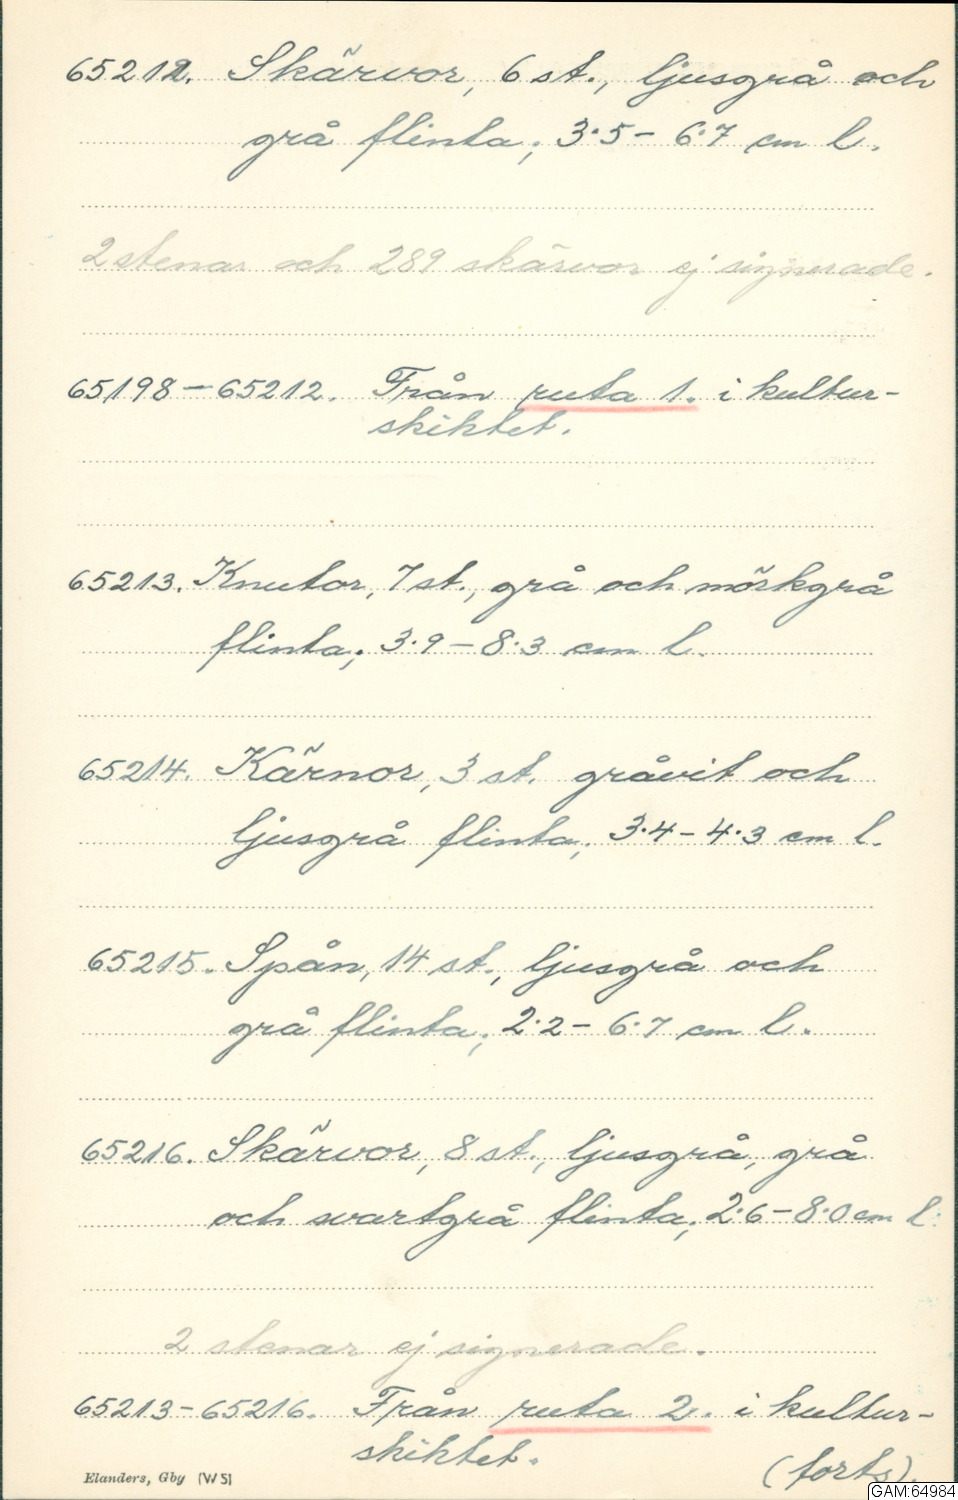 65212. Skärvor, 6 st., ljusgrå och
grå flinta; 3·5 - 6·7 cm l.
2 stenar och 289 skärvor ej signerade.
65198 - 65212. Från ruta 1. i kultur-
skiktet.
65213. Knutor, 7 st., grå och mörkgrå
flinta; 3·9 - 8·3 cm l.
65214. Kärnor, 3 st. gråvit och
ljusgrå flinta; 3·4 - 4·3 cm l.
65215. Spån, 14 st., ljusgrå och
grå flinta; 2·2 - 6·7 cm l.
65216. Skärvor, 8 st., ljusgrå, grå
och svartgrå flinta; 2·6 - 8·0 cm l.
2 stenar ej signerade.
65213 - 65216. Från ruta 2. i kultur-
skiktet.
(forts).
Elanders, Gby (W 5)
GAM:64984